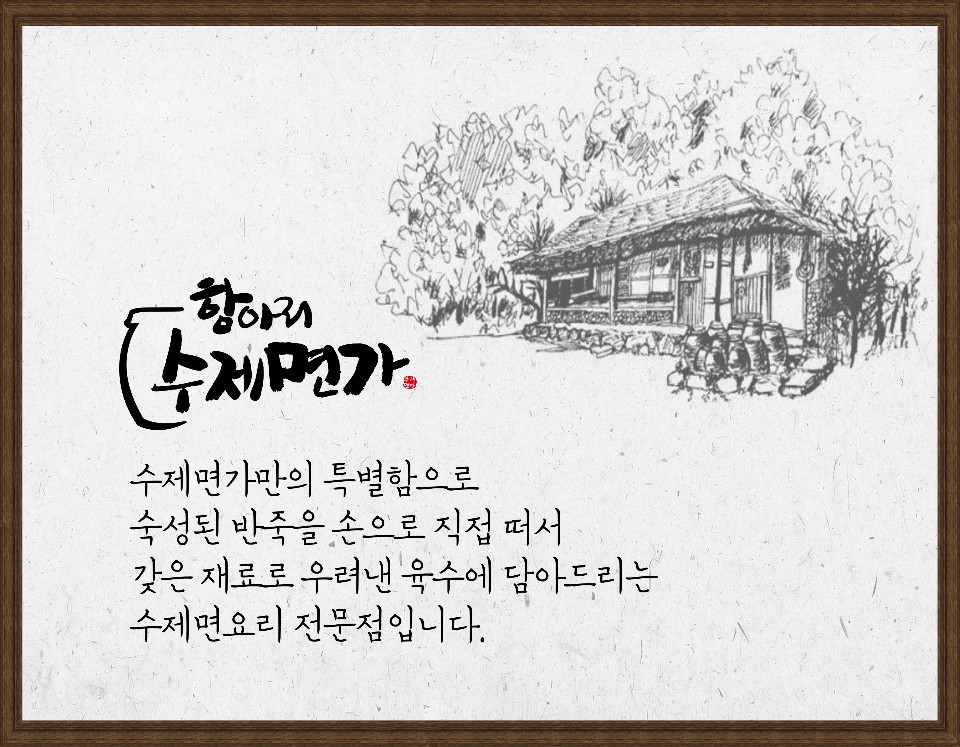 항아리
수제면가
수제면가만의 특별함으로
숙성된 반죽을 손으로 직접 떠서
갖은 재료로 우려낸 육수에 담아드리는
수제면요리 전문점입니다.